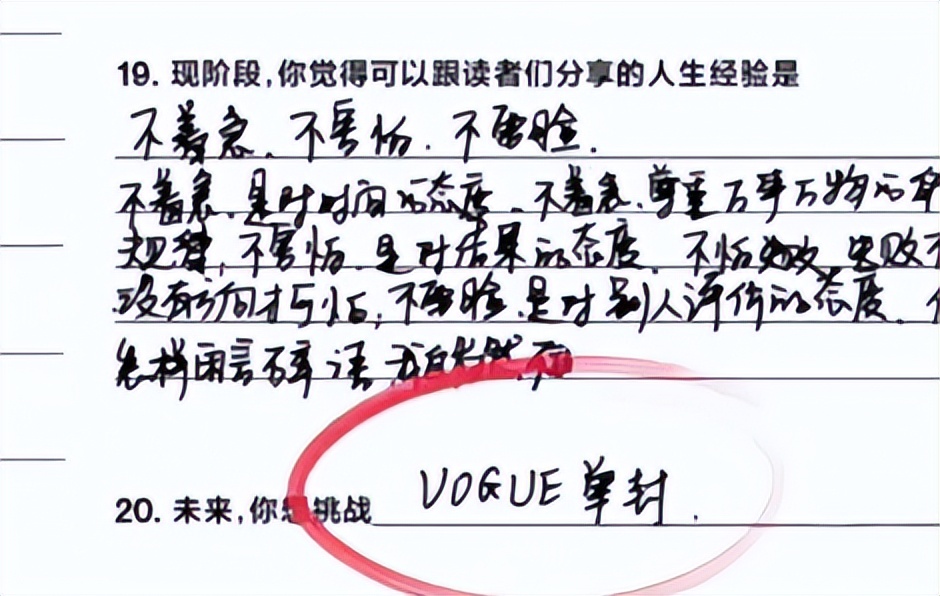 19. 现阶段,你觉得可以跟读者们分享的人生经验是
不着急、不害怕、不要脸.
不着急,是对时间的态度、不着急、尊重万事万物的
规律,不害怕,是对结果的态度、不怕失败,失败不
没有方向才可怕,不要脸,是对别人评价的态度、
怎样闲言碎语 我自
20. 未来,你想挑战 VOGUE 单封.